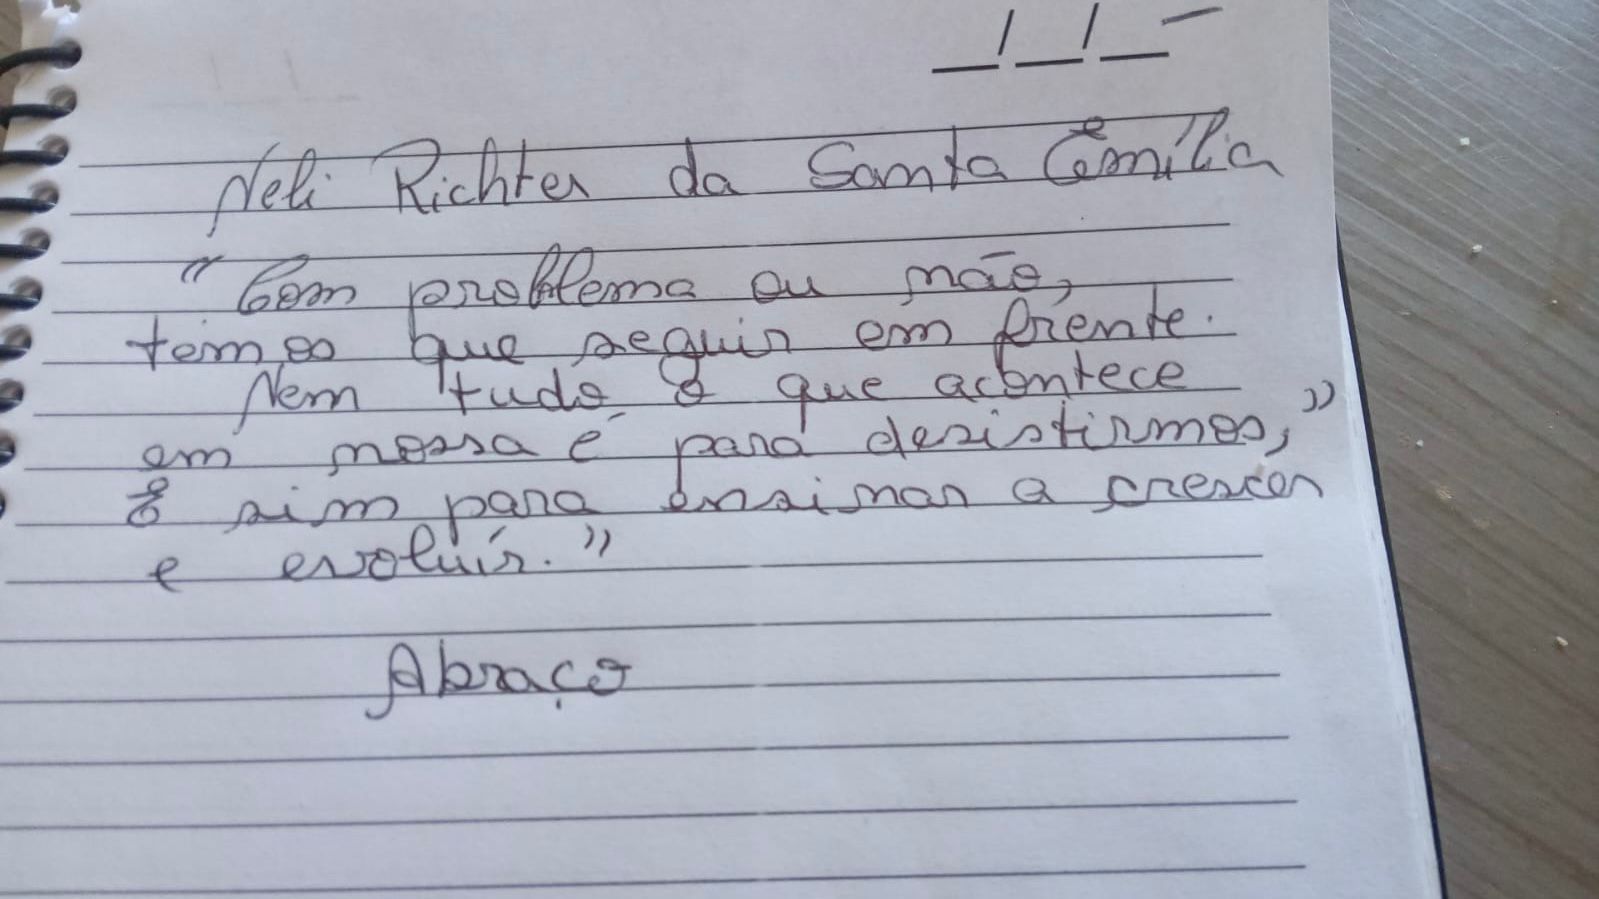 Neli Richter da Santa Emília
"Com problema ou não,
temos que seguir em frente.
Nem tudo o que acontece
em nossa é para desistirmos,"
E sim para ensinar a crescer
e evoluír."
Abraço